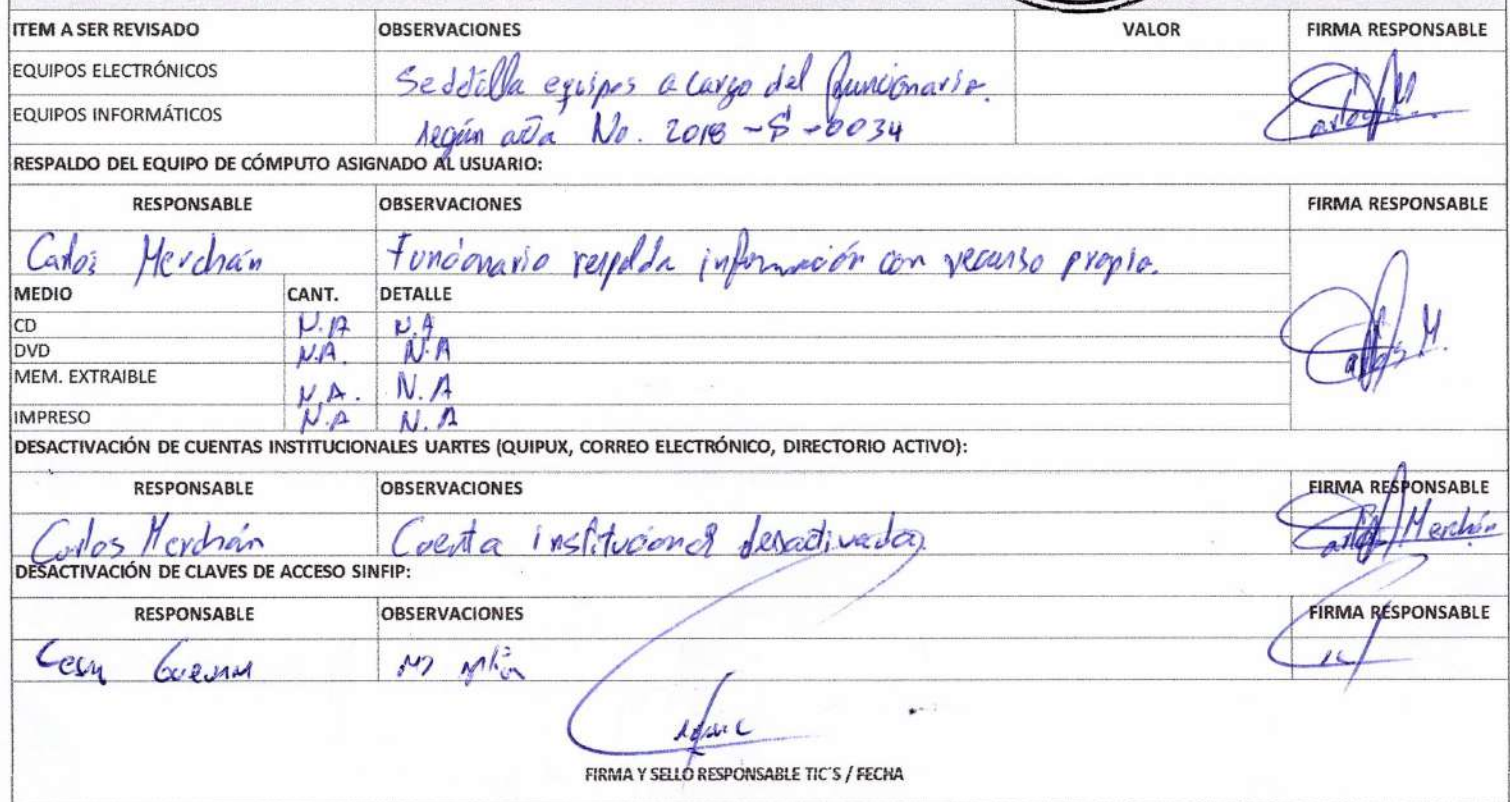 ITEM A SER REVISADO OBSERVACIONES VALOR FIRMA RESPONSABLE
EQUIPOS ELECTRÓNICOS Se detalla equipos a cargo del funcionario.
EQUIPOS INFORMÁTICOS según acta No. 2018-S-0034
Carlos M.
RESPALDO DEL EQUIPO DE CÓMPUTO ASIGNADO AL USUARIO:
RESPONSABLE OBSERVACIONES FIRMA RESPONSABLE
Carlos Merchán Funcionario respalda información con recurso propio.
MEDIO CANT. DETALLE
CD N.A N.A
DVD N.A. N.A
Carlos M.
MEM. EXTRAIBLE N.A. N.A
IMPRESO N.A N.A
DESACTIVACIÓN DE CUENTAS INSTITUCIONALES UARTES (QUIPUX, CORREO ELECTRÓNICO, DIRECTORIO ACTIVO):
RESPONSABLE OBSERVACIONES FIRMA RESPONSABLE
Carlos Merchán Cuenta institucional desactivada Carlos Merchán
DESACTIVACIÓN DE CLAVES DE ACCESO SINFIP:
RESPONSABLE OBSERVACIONES FIRMA RESPONSABLE
FIRMA Y SELLO RESPONSABLE TIC'S / FECHA